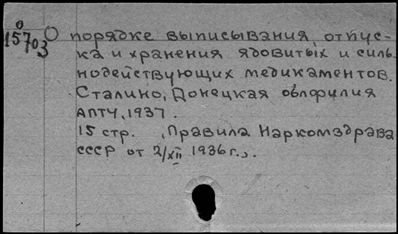 0
15703 О порядке выписывания, отпус-
ка и хранения ядовитых и силь-
нодействующих медикаментов.
Сталино, Донецкая облфилия
АПТУ, 1937.
15 стр. „Правила Наркомздрава
СССР от 2/XII 1936 г.„.